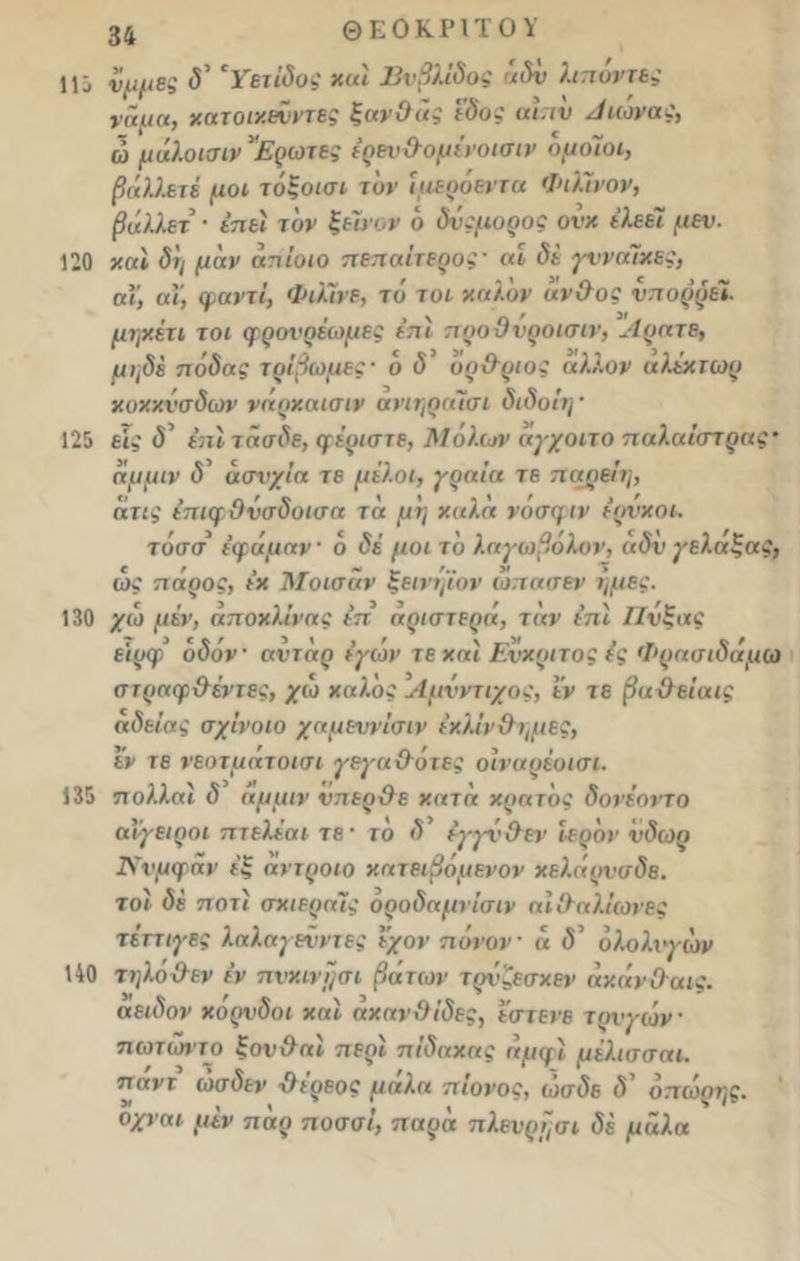 34 ΘΕΟΚΡΙΤΟΥ
115 ὔμμες δ᾽ Ὑετίδος καὶ Βυβλίδος ἁδὺ λιπόντες
νᾶμα, κατοικεῦντες ξανθᾶς ἕδος αἰπὺ Διώνας,
ὦ μάλοισιν Ἔρωτες ἐρευθομένοισιν ὁμοῖοι,
βάλλετέ μοι τόξοισι τὸν ἱμερόεντα Φιλῖνον,
βάλλετ᾽· ἐπεὶ τὸν ξεῖνον ὁ δύςμορος οὐκ ἐλεεῖ μευ.
120 καὶ δὴ μὰν ἀπίοιο πεπαίτερος· αἱ δὲ γυναῖκες,
αἴ, αἴ, φαντί, Φιλῖνε, τό τοι καλὸν ἄνθος ὑποῤῥεῖ.
μηκέτι τοι φρουρέωμες ἐπὶ προθύροισιν, Ἄρατε,
μηδὲ πόδας τρίβωμες· ὁ δ᾽ ὄρθριος ἄλλον ἀλέκτωρ
κοκκύσδων νάρκαισιν ἀνιηραῖσι διδοίη·
125 εἷς δ᾽ ἐπὶ τᾶσδε, φέριστε, Μόλων ἄγχοιτο παλαίστρας·
ἄμμιν δ᾽ ἁσυχία τε μέλοι, γραία τε παρείη,
ἅτις ἐπιφθύσδοισα τὰ μὴ καλὰ νόσφιν ἐρύκοι.
τόσσ᾽ ἐφάμαν· ὁ δέ μοι τὸ λαγωβόλον, ἁδὺ γελάξας,
ὡς πάρος, ἐκ Μοισᾶν ξεινήϊον ὤπασεν ἦμες.
130 χὡ μέν, ἀποκλίνας ἐπ᾽ ἀριστερά, τὰν ἐπὶ Πύξας
εἷρφ᾽ ὁδόν· αὐτὰρ ἐγών τε καὶ Εὔκριτος ἐς Φρασιδάμω
στραφθέντες, χὡ καλὸς Ἀμύντιχος, ἔν τε βαθείαις
ἁδείας σχίνοιο χαμευνίσιν ἐκλίνθημες,
ἔν τε νεοτμάτοισι γεγαθότες οἰναρέοισι.
135 πολλαὶ δ᾽ ἄμμιν ὕπερθε κατὰ κρατὸς δονέοντο
αἴγειροι πτελέαι τε· τὸ δ᾽ ἐγγύθεν ἱερὸν ὕδωρ
Νυμφᾶν ἐξ ἄντροιο κατειβόμενον κελάρυσδε.
τοὶ δὲ ποτὶ σκιεραῖς ὀροδαμνίσιν αἰθαλίωνες
τέττιγες λαλαγεῦντες ἔχον πόνον· ἁ δ᾽ ὀλολυγὼν
140 τηλόθεν ἐν πυκινῇσι βάτων τρύζεσκεν ἀκάνθαις.
ἄειδον κόρυδοι καὶ ἀκανθίδες, ἔστενε τρυγών·
πωτῶντο ξουθαὶ περὶ πίδακας ἀμφὶ μέλισσαι.
πάντ᾽ ὦσδεν θέρεος μάλα πίονος, ὦσδε δ᾽ ὀπώρης.
ὄχναι μὲν πὰρ ποσσί, παρὰ πλευρῇσι δὲ μᾶλα